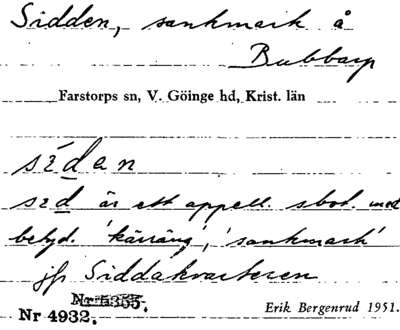 Sidden, sankmark å
Bubbarp
Farstorps sn, V. Göinge hd, Krist. län
sídan
sid är ett appell. sbst. med
betyd. 'kärräng', 'sankmark'
jfr Siddakvarteren
Nr 5355.
Nr 4932.
Erik Bergenrud 1951.